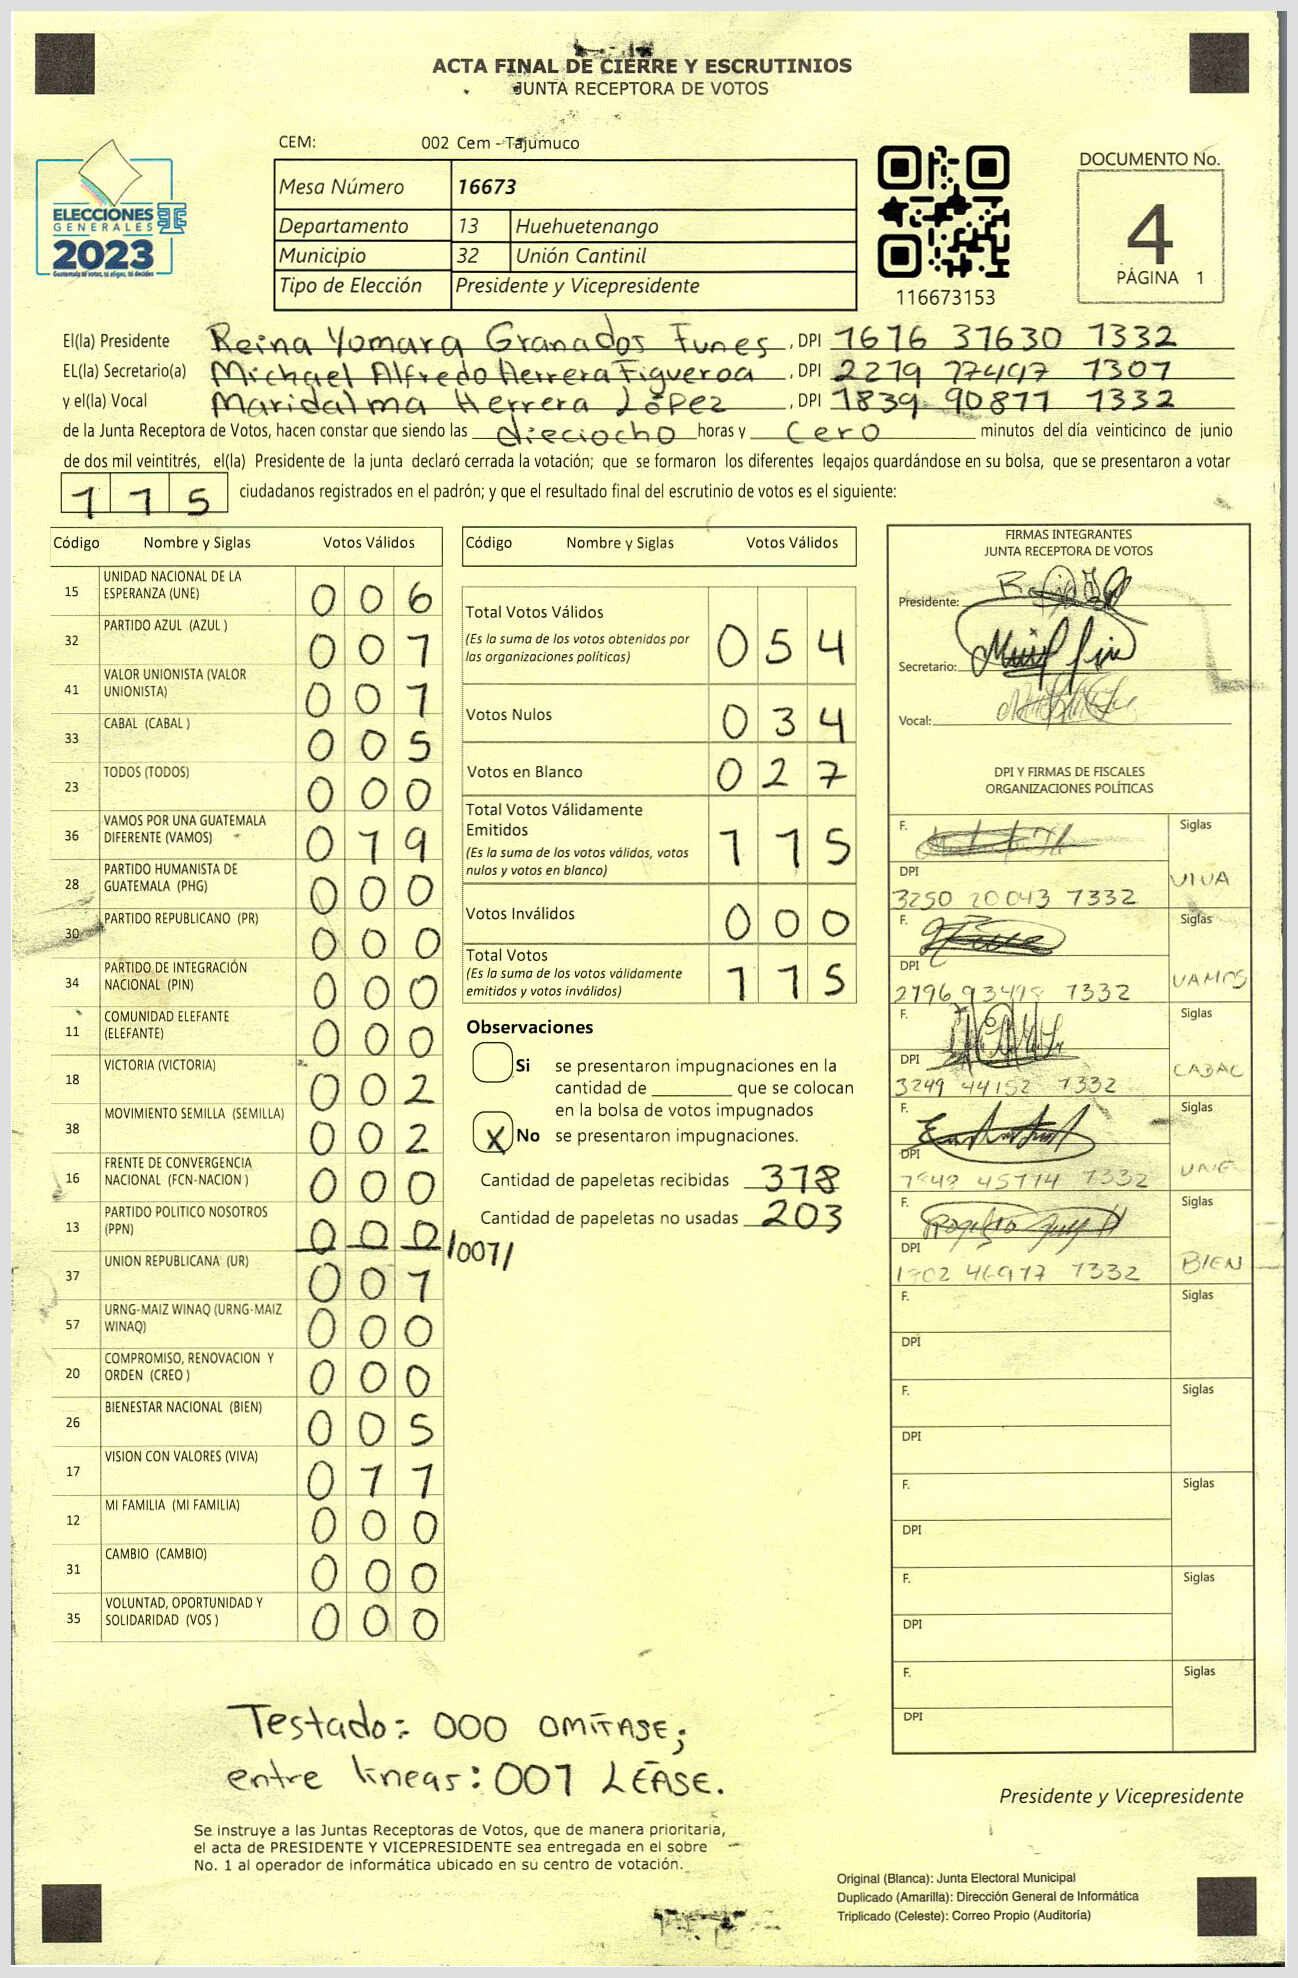 ACTA FINAL DE CIERRE Y ESCRUTINIOS
JUNTA RECEPTORA DE VOTOS
CEM: 002 Cem - Tajumuco
ELECCIONES
GENERALES
2023
Mesa Número 16673
Departamento 13 Huehuetenango
Municipio 32 Unión Cantinil
Tipo de Elección Presidente y Vicepresidente
116673153
DOCUMENTO No.
4
PÁGINA 1
El(la) Presidente Reina Yomara Granados Funes, DPI 1676 37630 1332
EL(la) Secretario(a) Michael Alfredo Herrera Figueroa, DPI 2219 77497 1307
y el(la) Vocal Maridalma Herrera López, DPI 1839 90871 1332
de la Junta Receptora de Votos, hacen constar que siendo las dieciocho horas y cero minutos del día veinticinco de junio
de dos mil veintitrés, el(la) Presidente de la junta declaró cerrada la votación; que se formaron los diferentes legajos guardándose en su bolsa, que se presentaron a votar
115 ciudadanos registrados en el padrón; y que el resultado final del escrutinio de votos es el siguiente:
Código Nombre y Siglas Votos Válidos
15 UNIDAD NACIONAL DE LA ESPERANZA (UNE) 006
32 PARTIDO AZUL (AZUL ) 001
41 VALOR UNIONISTA (VALOR UNIONISTA) 001
33 CABAL (CABAL ) 005
23 TODOS (TODOS) 000
36 VAMOS POR UNA GUATEMALA DIFERENTE (VAMOS) 019
28 PARTIDO HUMANISTA DE GUATEMALA (PHG) 000
30 PARTIDO REPUBLICANO (PR) 000
34 PARTIDO DE INTEGRACIÓN NACIONAL (PIN) 000
11 COMUNIDAD ELEFANTE (ELEFANTE) 000
18 VICTORIA (VICTORIA) 002
38 MOVIMIENTO SEMILLA (SEMILLA) 002
16 FRENTE DE CONVERGENCIA NACIONAL (FCN-NACION ) 000
13 PARTIDO POLITICO NOSOTROS (PPN) 000 /001/
37 UNION REPUBLICANA (UR) 001
57 URNG-MAIZ WINAQ (URNG-MAIZ WINAQ) 000
20 COMPROMISO, RENOVACION Y ORDEN (CREO ) 000
26 BIENESTAR NACIONAL (BIEN) 005
17 VISION CON VALORES (VIVA) 011
12 MI FAMILIA (MI FAMILIA) 000
31 CAMBIO (CAMBIO) 000
35 VOLUNTAD, OPORTUNIDAD Y SOLIDARIDAD (VOS ) 000
Código Nombre y Siglas Votos Válidos
Total Votos Válidos 054
(Es la suma de los votos obtenidos por
las organizaciones políticas)
Votos Nulos 034
Votos en Blanco 027
Total Votos Válidamente
Emitidos 115
(Es la suma de los votos válidos, votos
nulos y votos en blanco)
Votos Inválidos 000
Total Votos 115
(Es la suma de los votos válidamente
emitidos y votos inválidos)
Observaciones
Si se presentaron impugnaciones en la
cantidad de ________ que se colocan
en la bolsa de votos impugnados
X No se presentaron impugnaciones.
Cantidad de papeletas recibidas 318
Cantidad de papeletas no usadas 203
FIRMAS INTEGRANTES
JUNTA RECEPTORA DE VOTOS
Presidente:
Secretario:
Vocal:
DPI Y FIRMAS DE FISCALES
ORGANIZACIONES POLÍTICAS
F. Siglas
DPI VIVA
3250 20043 1332
F. Siglas
DPI VAMOS
1332
F. Siglas
DPI CABAL
3249 44152 1332
F. Siglas
DPI UNE
45714 1332
F. Siglas
DPI BIEN
1332
F. Siglas
DPI
F. Siglas
DPI
F. Siglas
DPI
F. Siglas
DPI
F. Siglas
DPI
Testado: 000 OMÍTASE;
entre lineas: 001 LÉASE.
Presidente y Vicepresidente
Se instruye a las Juntas Receptoras de Votos, que de manera prioritaria,
el acta de PRESIDENTE Y VICEPRESIDENTE sea entregada en el sobre
No. 1 al operador de informática ubicado en su centro de votación.
Original (Blanca): Junta Electoral Municipal
Duplicado (Amarilla): Dirección General de Informática
Triplicado (Celeste): Correo Propio (Auditoría)